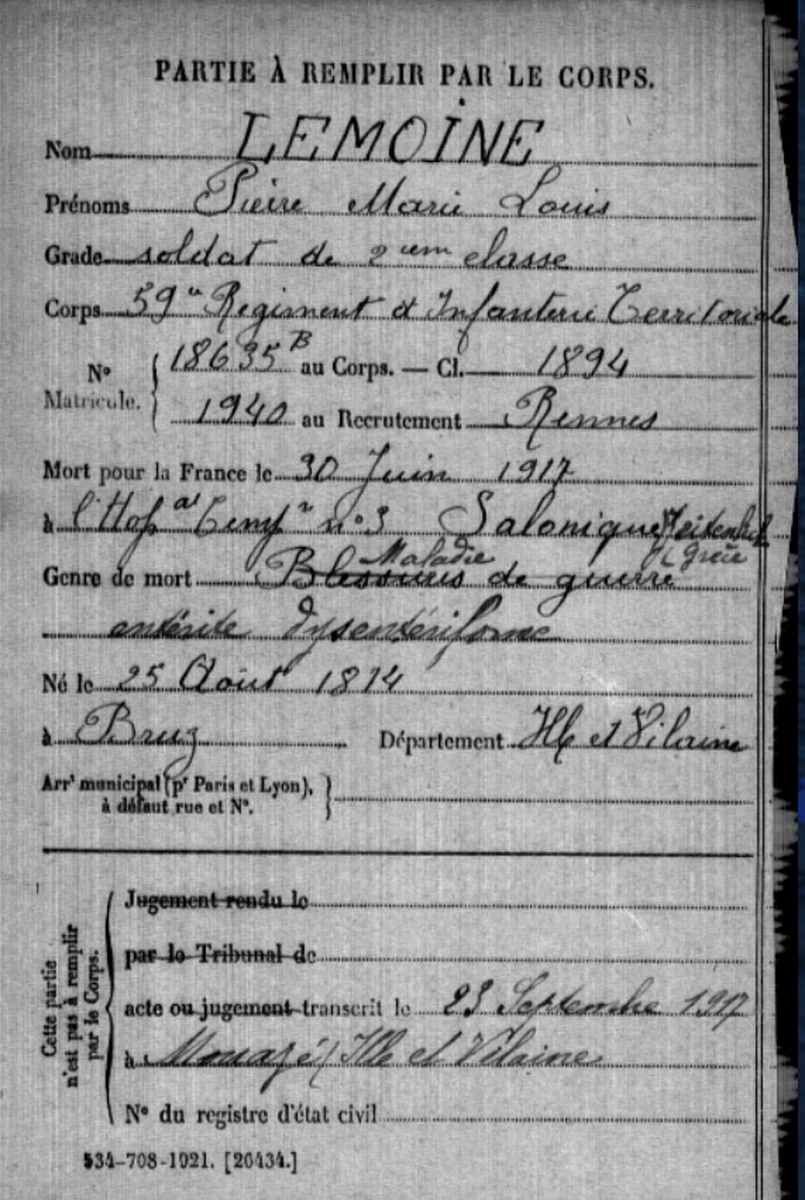 PARTIE À REMPLIR PAR LE CORPS.
Nom LEMOINE
Prénoms Pierre Marie Louis
Grade soldat de 2ieme classe
Corps 59e Régiment d'Infanterie Territoriale
N° Matricule. 18635 B au Corps. — Cl. 1894
1940 au Recrutement Rennes
Mort pour la France le 30 Juin 1917
à l'Hopal Tempre n°3 Salonique (Zeitenlick
Grèce
Maladie
Genre de mort Blessures de guerre
entérite dysentériforme
Né le 25 Août 1874
à Bruz Département Ille et Vilaine
Arrt municipal (pr Paris et Lyon),
à défaut rue et N°.
Cette partie
n'est pas à remplir
par le Corps.
Jugement rendu le
par le Tribunal de
acte ou jugement transcrit le 23 Septembre 1917
à Mouazé (Ille et Vilaine
N° du registre d'état civil
534-708-1921. [26434.]